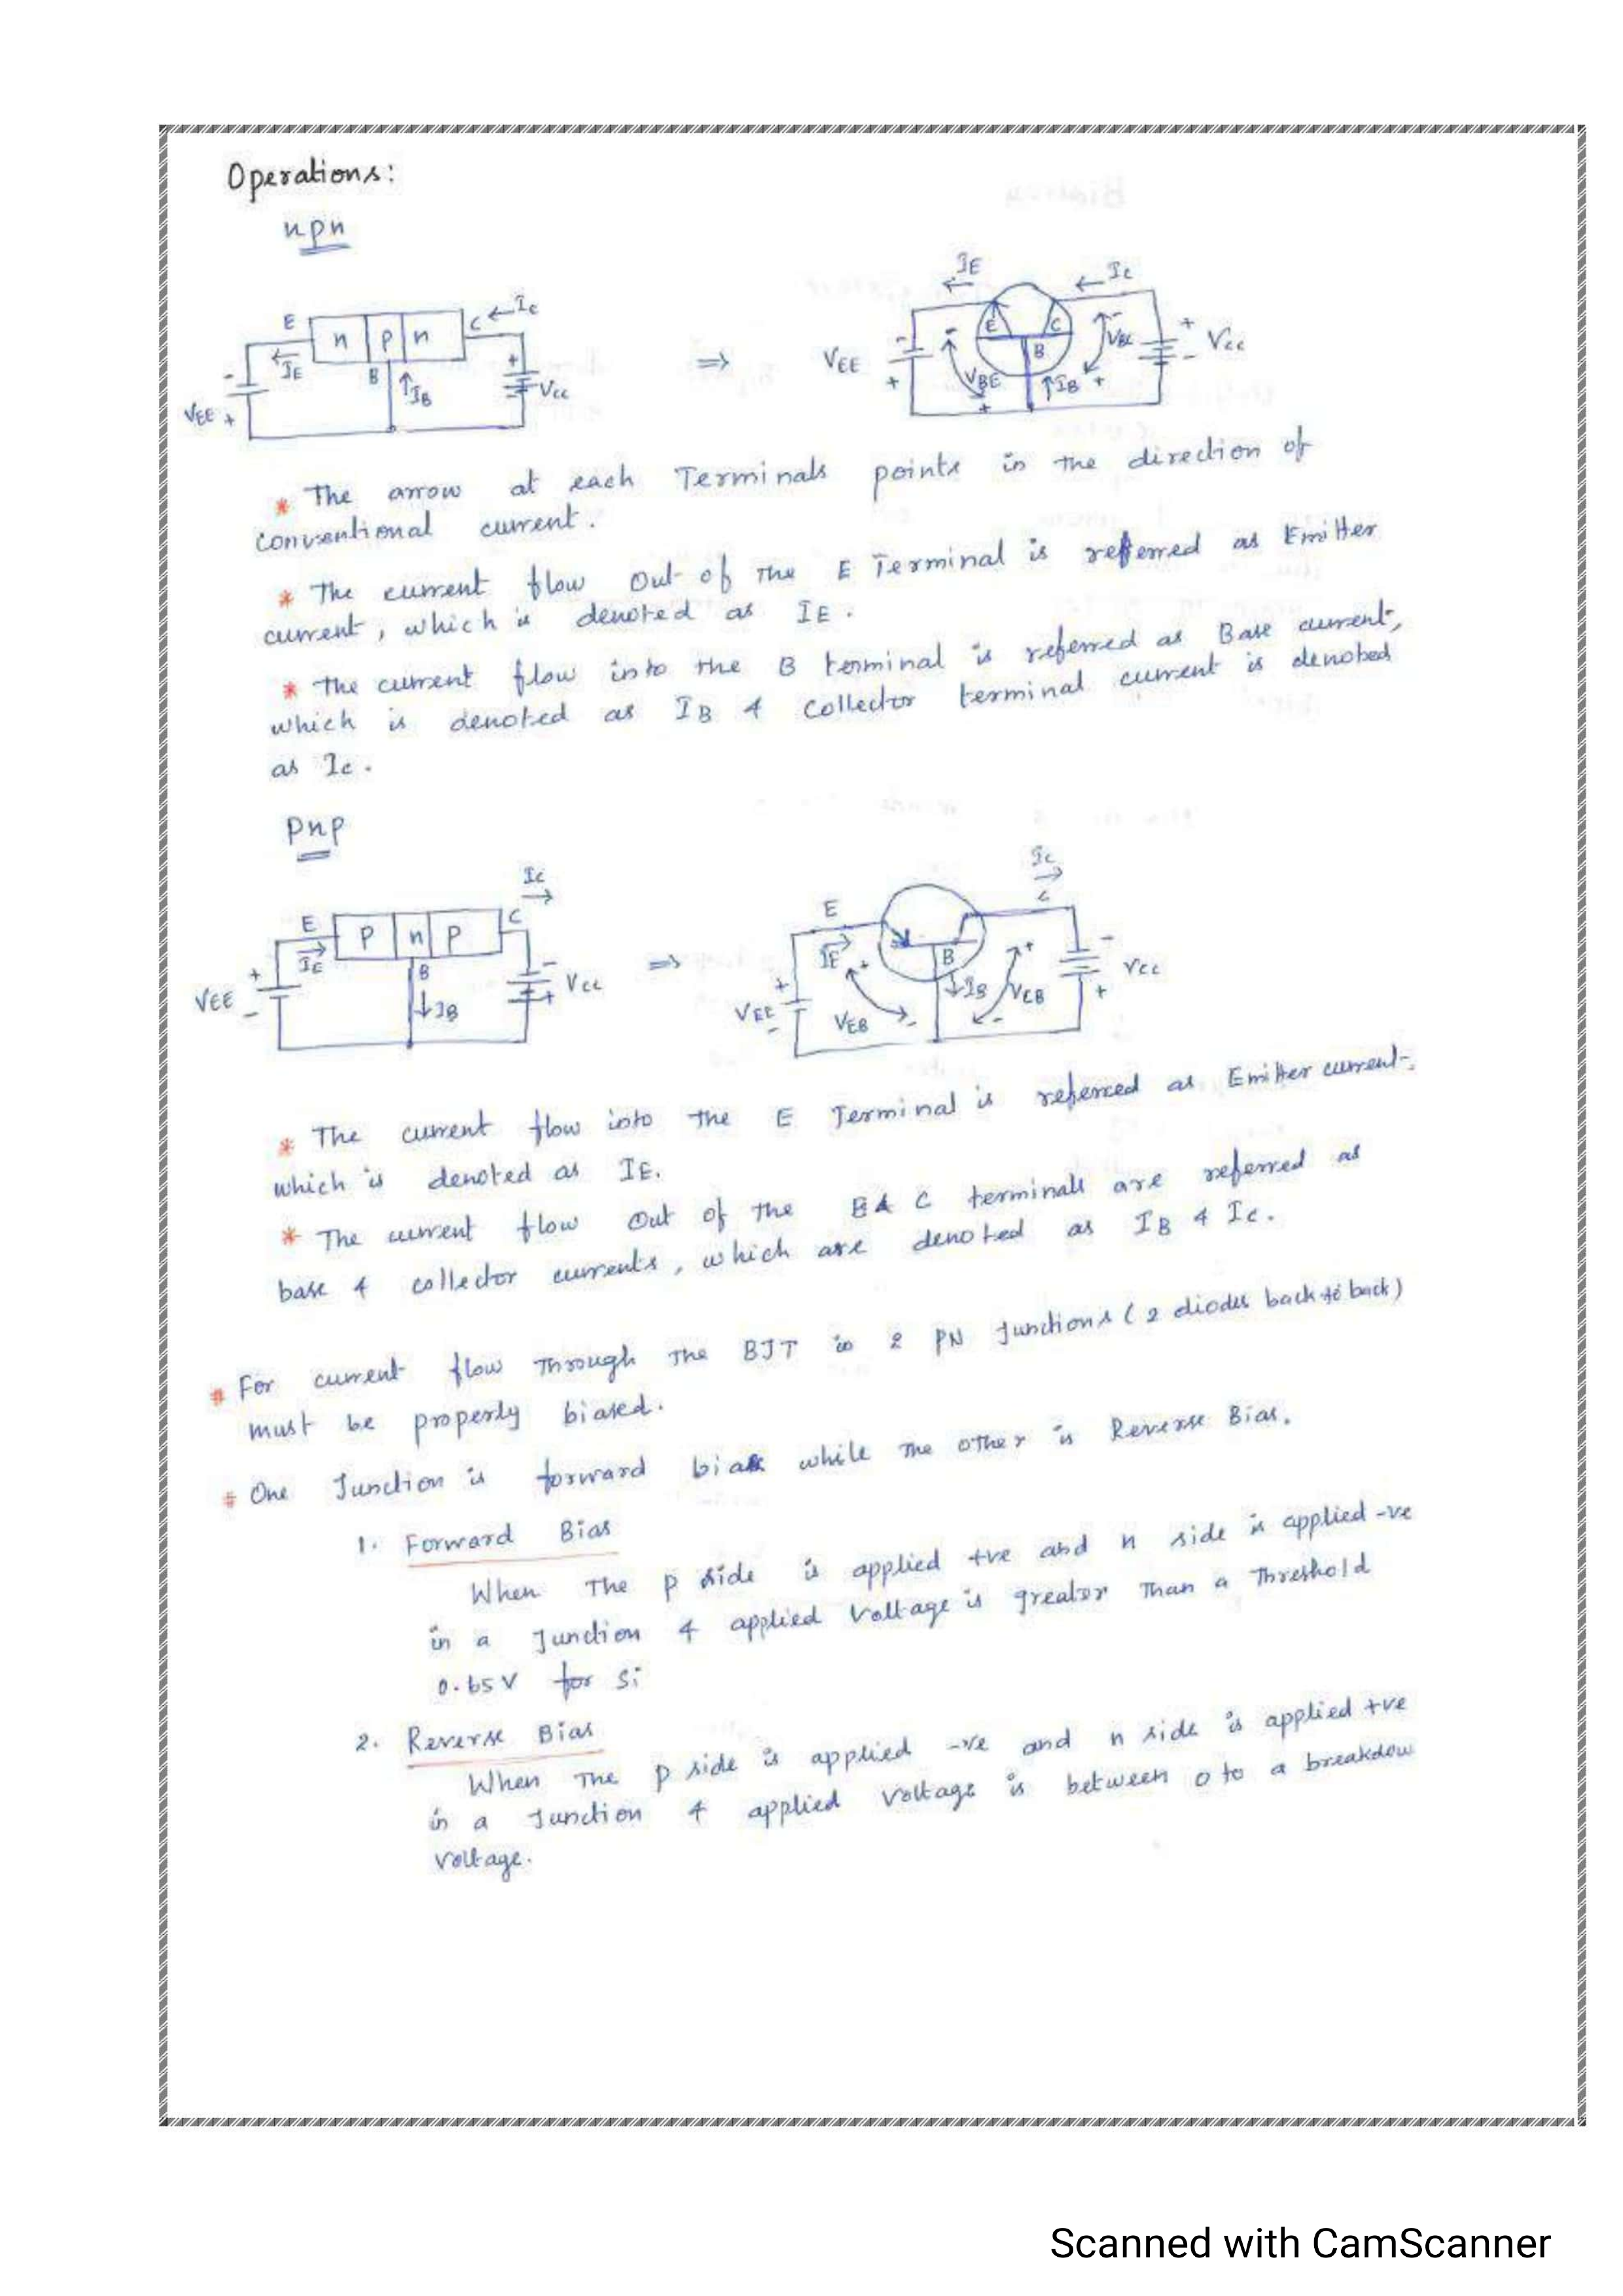 Operations:
npn
E n p n C ← Ic
← IE B ↑ IB
- VEE + + Vcc
⇒
← IE ← Ic
VEE - + E C B - VBE + ↑ IB - VBC + + - Vcc
* The arrow at each Terminals points in the direction of
conventional current.
* The current flow out of the E Terminal is referred as Emitter
current, which is denoted as IE.
* The current flow into the B terminal is referred as Base current,
which is denoted as IB & Collector terminal current is denoted
as Ic.
pnp
Ic →
E P n P C
→ IE B ↓ IB
VEE + - - + Vcc
⇒
Ic →
E
→ IE B ↓ IB
VEE + - + VEB - + VCB - - + Vcc
* The current flow into the E Terminal is referred as Emitter current,
which is denoted as IE.
* The current flow out of the B & C terminals are referred as
base & collector currents, which are denoted as IB & Ic.
* For current flow Through The BJT is 2 PN Junctions (2 diodes back to back)
must be properly biased.
* One Junction is forward bias while The other is Reverse Bias.
1. Forward Bias
When The p side is applied +ve and n side is applied -ve
in a Junction & applied Voltage is greater Than a Threshold
0.65V for Si
2. Reverse Bias
When The p side is applied -ve and n side is applied +ve
in a Junction & applied Voltage is between 0 to a breakdow
voltage.
Scanned with CamScanner